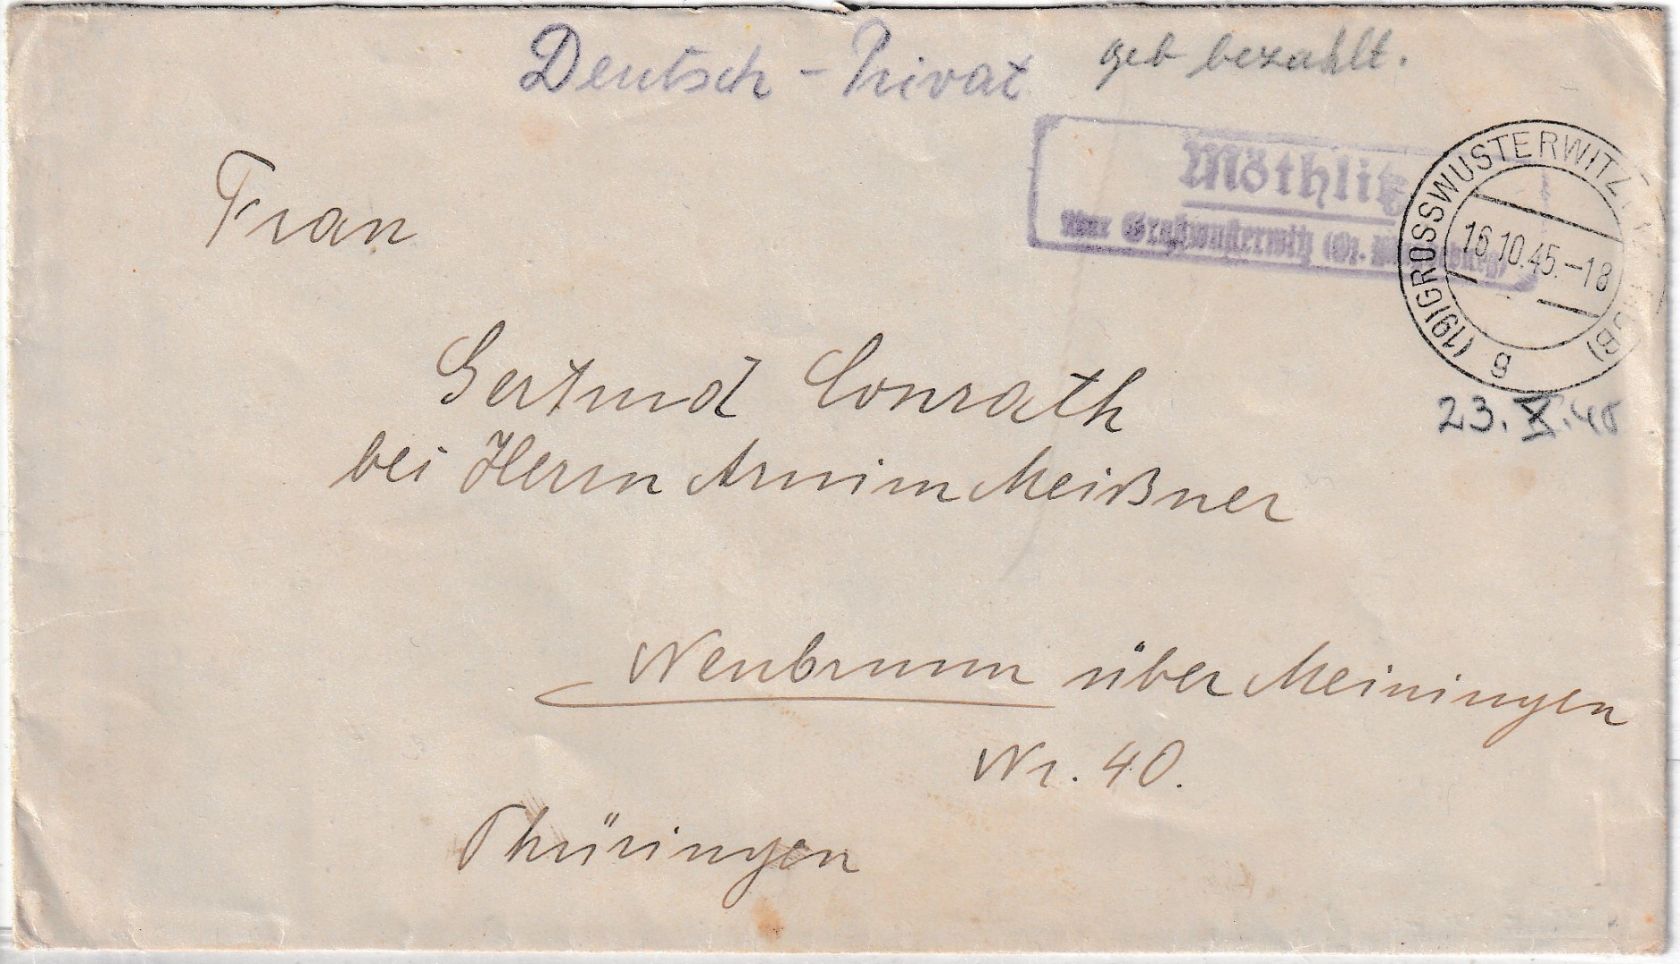 Deutsch - Privat geb bezahlt.
Möthlitz
über Großwusterwitz (Bz. Magdeburg)
(19) GROSSWUSTERWITZ
16.10.45.-18
g
23. X. 45
Frau
Gertrud Conrath
bei Herrn Armin Meißner
Neubrunn über Meiningen
Nr. 40.
Thüringen